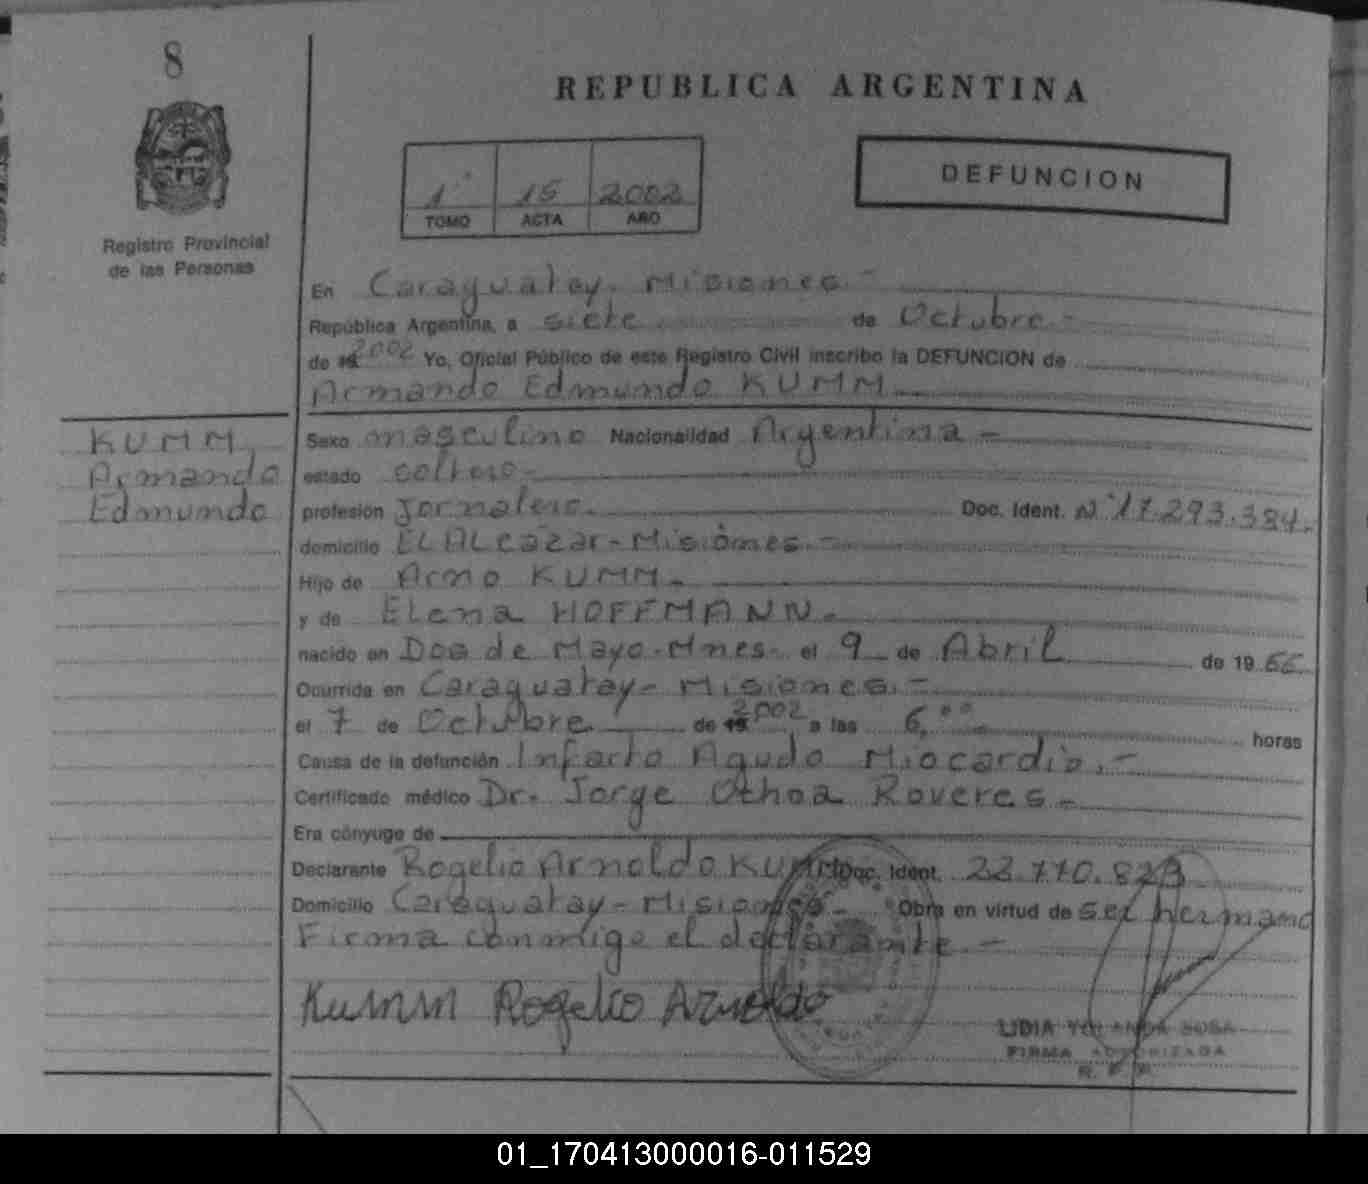 8
REPUBLICA ARGENTINA
1º 15 2002
TOMO ACTA AÑO
DEFUNCION
Registro Provincial
de las Personas
En Caraguatay. Misiones.-
República Argentina, a siete de Octubre.-
de 19 2002 Yo, Oficial Público de este Registro Civil inscribo la DEFUNCION de
Armando Edmundo KUMM.
KUMM
Armando
Edmundo
Sexo masculino Nacionalidad Argentina-
estado soltero-
profesión Jornalero. Doc. Ident. Nº 17.293.384.
domicilio ELALcázar-Misiones.-
Hijo de Arno KUMM.
y de Elena HOFFMANN.
nacido en Dos de Mayo-Mnes- el 9 de Abril de 1966
Ocurrida en Caraguatay-Misiones.-
el 7 de Octubre de 19 2002 a las 6,ºº horas
Causa de la defunción Infarto Agudo Miocardio.-
Certificado médico Dr. Jorge Othoa Roveres-
Era cónyuge de
Declarante Rogelio Arnoldo KUMM Doc. Ident. 22.770.823
Domicilio Caraguatay-Misiones- Obra en virtud de ser hermano
Firma conmigo el declarante-
Kumm Rogelio Arnoldo
LIDIA YOLANDA SOSA
FIRMA AUTORIZADA
R. P. P.
01_170413000016-011529